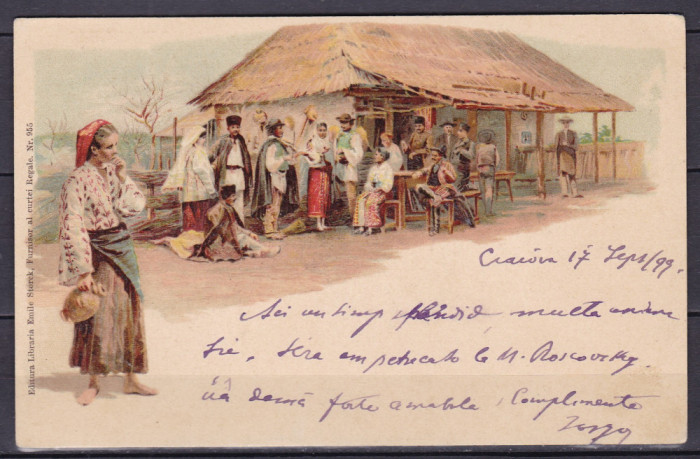 Editura Libraria Emile Storck, Furnisor al curtei Regale, Nr. 955
Craiova 17 Sept/99.
Aci un timp splendid, multa anima
tie. Séra am petrecut o la M. Roscovesky
damă forte amabila, Complimente